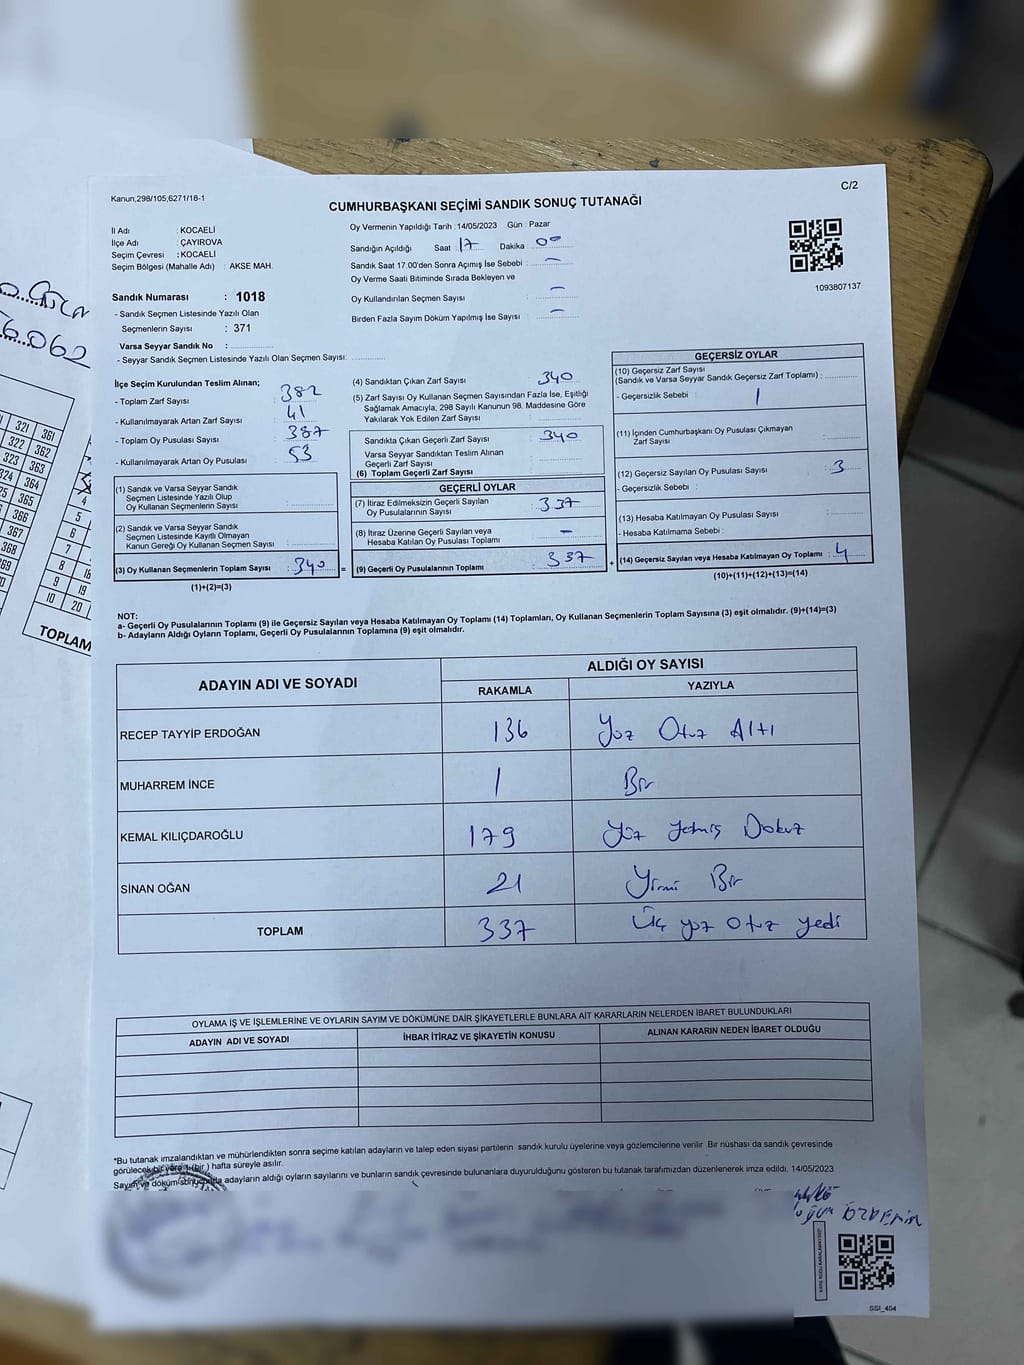 Kanun,298/105,6271/18-1
C/2
CUMHURBAŞKANI SEÇİMİ SANDIK SONUÇ TUTANAĞI
İl Adı : KOCAELİ
İlçe Adı : ÇAYIROVA
Seçim Çevresi : KOCAELİ
Seçim Bölgesi (Mahalle Adı) : AKSE MAH.
Sandık Numarası : 1018
- Sandık Seçmen Listesinde Yazılı Olan
Seçmenlerin Sayısı : 371
Varsa Seyyar Sandık No :
- Seyyar Sandık Seçmen Listesinde Yazılı Olan Seçmen Sayısı:
Oy Vermenin Yapıldığı Tarih :14/05/2023 Gün : Pazar
Sandığın Açıldığı Saat : 17 Dakika : 00
Sandık Saat 17:00'den Sonra Açımış İse Sebebi : -
Oy Verme Saati Bitiminde Sırada Bekleyen ve
Oy Kullandırılan Seçmen Sayısı : -
Birden Fazla Sayım Döküm Yapılmış İse Sayısı : -
1093807137
İlçe Seçim Kurulundan Teslim Alınan;
- Toplam Zarf Sayısı : 382
- Kullanılmayarak Artan Zarf Sayısı : 41
- Toplam Oy Pusulası Sayısı : 387
- Kullanılmayarak Artan Oy Pusulası : 53
(1) Sandık ve Varsa Seyyar Sandık
Seçmen Listesinde Yazılı Olup
Oy Kullanan Seçmenlerin Sayısı :
(2) Sandık ve Varsa Seyyar Sandık
Seçmen Listesinde Kayıtlı Olmayan
Kanun Gereği Oy Kullanan Seçmen Sayısı :
(3) Oy Kullanan Seçmenlerin Toplam Sayısı : 340 =
(1)+(2)=(3)
(4) Sandıktan Çıkan Zarf Sayısı : 340
(5) Zarf Sayısı Oy Kullanan Seçmen Sayısından Fazla İse, Eşitliği
Sağlamak Amacıyla, 298 Sayılı Kanunun 98. Maddesine Göre
Yakılarak Yok Edilen Zarf Sayısı :
Sandıkta Çıkan Geçerli Zarf Sayısı : 340
Varsa Seyyar Sandıktan Teslim Alınan
Geçerli Zarf Sayısı :
(6) Toplam Geçerli Zarf Sayısı :
GEÇERLİ OYLAR
(7) İtiraz Edilmeksizin Geçerli Sayılan
Oy Pusulalarının Sayısı : 337
(8) İtiraz Üzerine Geçerli Sayılan veya
Hesaba Katılan Oy Pusulası Toplamı : -
(9) Geçerli Oy Pusulalarının Toplamı : 337 +
GEÇERSİZ OYLAR
(10) Geçersiz Zarf Sayısı
(Sandık ve Varsa Seyyar Sandık Geçersiz Zarf Toplamı) :
- Geçersizlik Sebebi : 1
(11) İçinden Cumhurbaşkanı Oy Pusulası Çıkmayan
Zarf Sayısı :
(12) Geçersiz Sayılan Oy Pusulası Sayısı : 3
- Geçersizlik Sebebi :
(13) Hesaba Katılmayan Oy Pusulası Sayısı :
- Hesaba Katılmama Sebebi :
(14) Geçersiz Sayılan veya Hesaba Katılmayan Oy Toplamı : 4
(10)+(11)+(12)+(13)=(14)
NOT:
a- Geçerli Oy Pusulalarının Toplamı (9) ile Geçersiz Sayılan veya Hesaba Katılmayan Oy Toplamı (14) Toplamları, Oy Kullanan Seçmenlerin Toplam Sayısına (3) eşit olmalıdır. (9)+(14)=(3)
b- Adayların Aldığı Oyların Toplamı, Geçerli Oy Pusulalarının Toplamına (9) eşit olmalıdır.
ADAYIN ADI VE SOYADI
ALDIĞI OY SAYISI
RAKAMLA YAZIYLA
RECEP TAYYİP ERDOĞAN 136 Yüz Otuz Altı
MUHARREM İNCE 1 Bir
KEMAL KILIÇDAROĞLU 179 Yüz Yetmiş Dokuz
SİNAN OĞAN 21 Yirmi Bir
TOPLAM 337 Üç yüz Otuz yedi
OYLAMA İŞ VE İŞLEMLERİNE VE OYLARIN SAYIM VE DÖKÜMÜNE DAİR ŞİKAYETLERLE BUNLARA AİT KARARLARIN NELERDEN İBARET BULUNDUKLARI
ADAYIN ADI VE SOYADI İHBAR İTİRAZ VE ŞİKAYETİN KONUSU ALINAN KARARIN NEDEN İBARET OLDUĞU
*Bu tutanak imzalandıktan ve mühürlendikten sonra seçime katılan adayların ve talep eden siyasi partilerin sandık kurulu üyelerine veya gözlemcilerine verilir. Bir nüshası da sandık çevresinde
görülecek bir yere 1 (bir) hafta süreyle asılır.
Sayım ve döküm sonucunda adayların aldığı oyların sayılarını ve bunların sandık çevresinde bulunanlara duyurulduğunu gösteren bu tutanak tarafımızdan düzenlenerek imza edildi. 14/05/2023
ÖZDEMİR
SSI_404
6062
321 361
322 362
323 363
324 364
365
366
367
368
4
5
6
7
8
9 19
10 20
TOPLAM